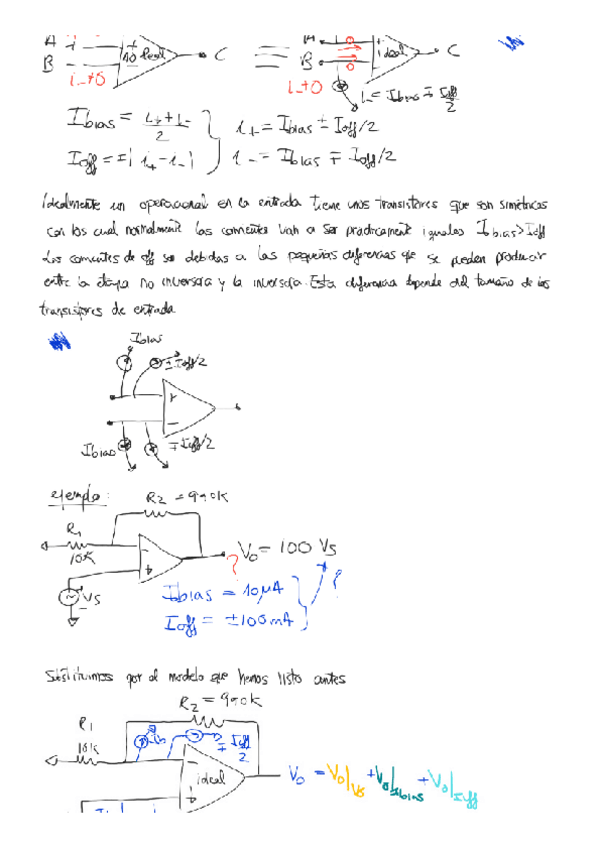 A i ideal C A 0 ideal C
B i→0 B 0 i→0
i- = Ibias ∓ Ioff/2
Ibias = i+ + i- / 2 i+ = Ibias ± Ioff/2
Ioff = ±| i+ - i- | i- = Ibias ∓ Ioff/2
Idealmente un operacional en la entrada tiene unos transistores que son simétricos
con los cual normalmente las corrientes van a ser practicamente iguales Ibias > Ioff
Las corrientes de off son debidas a las pequeñas diferencias que se pueden producir
entre la etapa no inversora y la inversora. Esta diferencia depende del tamaño de los
transistores de entrada
Ibias
± Ioff/2
+
-
Ibias ∓ Ioff/2
ejemplo: R2 = 990K
R1
10K - + ? Vo = 100 Vs
Vs Ibias = 10µA ?
Ioff = ±100mA
Sustituimos por el modelo que hemos visto antes
R2 = 990K
R1
10K Ib ∓ Ioff/2
- + ideal Vo = Vo|Vs + Vo|Ibias + Vo|Ioff